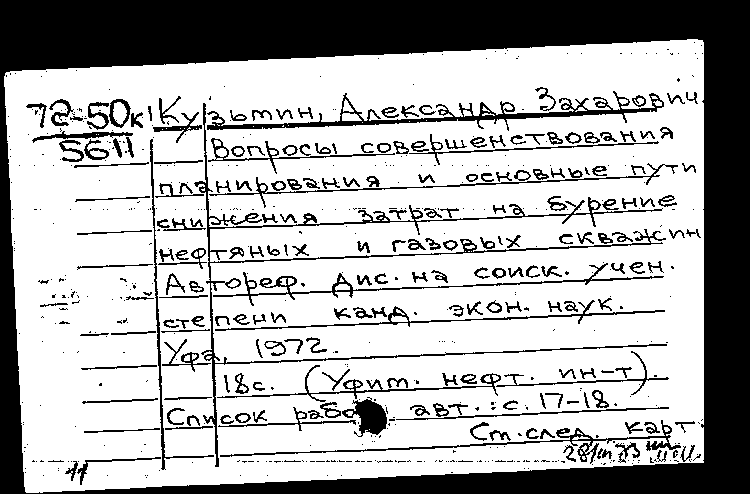 72-50к Кузьмин, Александр Захарович.
5611 Вопросы совершенствования
планирования и основные пути
снижения затрат на бурение
нефтяных и газовых скважин
Автореф. дис. на соиск. учен.
степени канд. экон. наук.
Уфа, 1972.
18с. (Уфим. нефт. ин-т).
Список рабо авт.: с. 17-18.
См. след. карт.
11